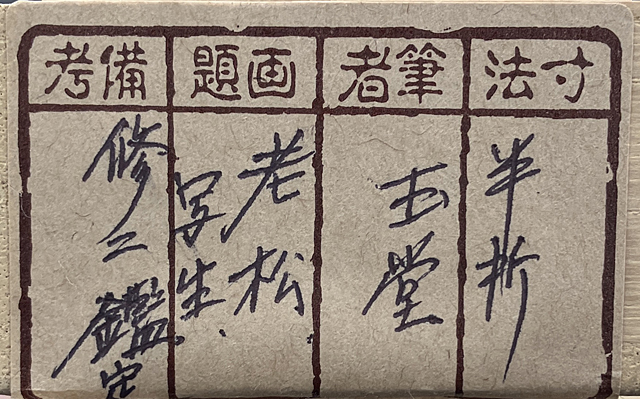 寸法
半折
筆者
玉堂
画題
老松
写生
備考
修二鑑定